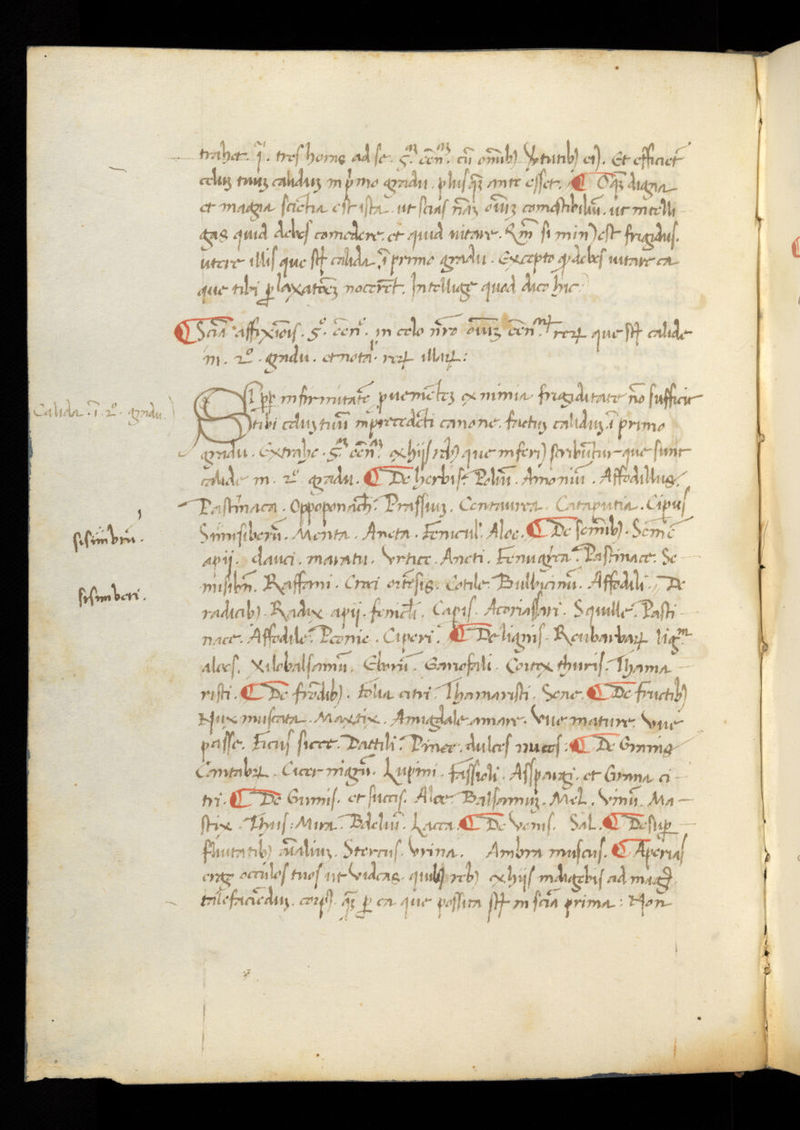 trahet. i. tres homs ad se. 5.am een.am cū omĩb) v̾tutib) ei). Et efficiet
celuʒ tuuʒ caliduʒ in pīmo gradu. plus qʒ ante esset. O qʒ digna
et magna scīētia est ista. ut scias nāʒ oīuʒ comestibiliū. ut intelli
gas quid debes comedere. et quid uitare. Qm̄ si min) est frigidus.
utere illis que st̄ calida. ī primo gradu. Excepto q debes uitare ea
que tibi ꝑ laxatōeʒ nocerēt. Intellige quod dico hic
Scīa affixiōis. 5.e een.e in celo n̄ro oīuʒ een.m reꝝ que st̄ calide
in. 2.o gradu. et nota reꝝ illaꝝ:
Si ꝓp infirmitatē puenietēʒ ex nimia frigiditate nō sufficit
tibi celuʒ tuū in precedēti canone. factuʒ caliduʒ. ī primo
gradu. Extrahe. 5.am een.am ex hijs reb) que inferi) scribūtur que sunt
calide in. 2.o gradu. De herbis. Poliū. Amoniū. Affodillus.
Pastinaca. Oppoponach. Prassiuʒ. Centaurea. Cataputia. Cipus
Sinisiberiū. Menta. Aneta. Fenicul. Aloe. De semīb). Semē
apij. dauci. maratri. Vrtice. Aneti. Fenugreci. Pastinace. Se
misibri. Raffani. Croci ortēsis. Cotile. Bulbicinū. Affodili. De
radicib). Radix apij. fenicli. Capis. Acoriassari. Squille. Pasti
nace. Affodile. Peonie. Ciperi. De lignis. Reubarbaꝝ lig.m
aloes. Xilobalsamū. Eborū. Gariofali. Cortex thuris. Thama
risti. De frōdib). folia citri. Thamaristi. Sene. De fructib)
Nux muscata. Mastix. Amigdale amare. Vue mature. Vue
passe. Ficus sicce. Dattili. Pinee. dulces nuces. De Granis
Cantabꝝ. Cicer nigrū. Lupini. fassioli. Asparagi. et Grana ci
tri. De Gumis. et succis. Aloe Balsamuʒ. Mel. Vinū. Ma
stix. Thus. Mirra. Bdeliū. Lacca. De Venis. Sal. De sup
fluitatib) aīaliuʒ. Stercus. Vrina. Ambra muscus. Aperias
ergo occulos tuos ut videas. quibus reb) ex hijs indigebis ad mag
calefaciēduʒ. corp). qʒ ꝑ ea que possita st̄ in scīa prima: Non
Calida. ī. 2.o gradu.
sisimbriū.
sisimberi.